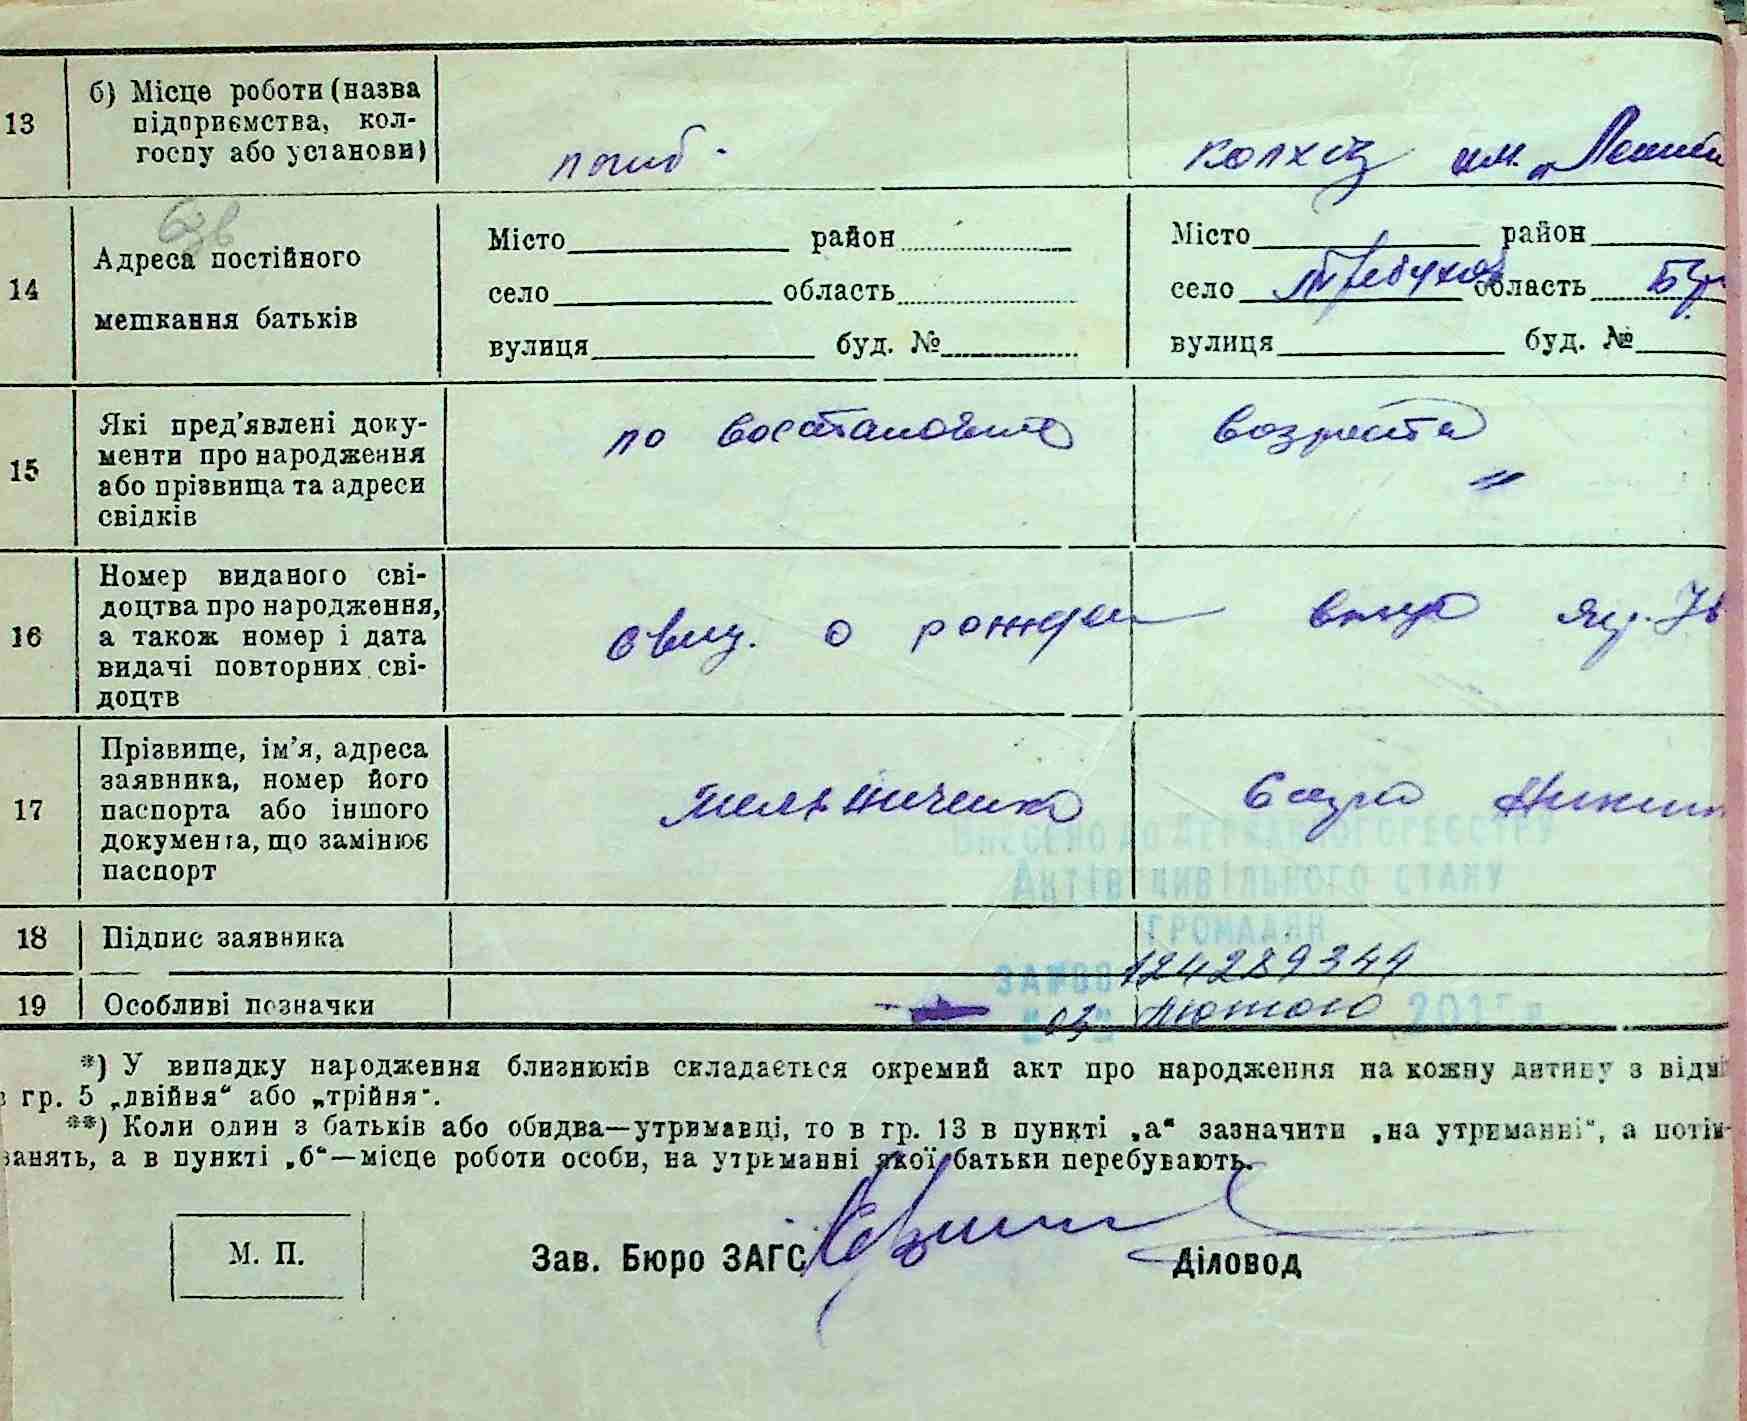 13 б) Місце роботи (назва підприємства, кол-госпу або установи) погиб. колхоз им. „Ленина
14 Адреса постійного мешкання батьків
Місто район
село область
вулиця буд. №
Місто район
село Требухов область
вулиця буд. №
15 Які пред'явлені доку-
менти про народження
або прізвища та адреси
свідків
по восстановлению возраста
16 Номер виданого сві-
доцтва про народження,
а також номер і дата
видачі повторних сві-
доцтв
свид. о рожден
17 Прізвище, ім'я, адреса
заявника, номер його
паспорта або іншого
документа, що замінює
паспорт
Мельниченко
Внесено до Державного реєстру
Актів цивільного стану
громадян
18 Підпис заявника
за №00 124289344
19 Особливі позначки
"03" лютого 201 р
*) У випадку народження близнюків складається окремий акт про народження на кожну дитину з відмі
в гр. 5 „двійня“ або „трійня“.
**) Коли один з батьків або обидва—утриманці, то в гр. 13 в пункті „а“ зазначити „на утриманні“, а потім
занять, а в пункті „б“—місце роботи особи, на утриманні якої батьки перебувають.
М. П. Зав. Бюро ЗАГС Діловод